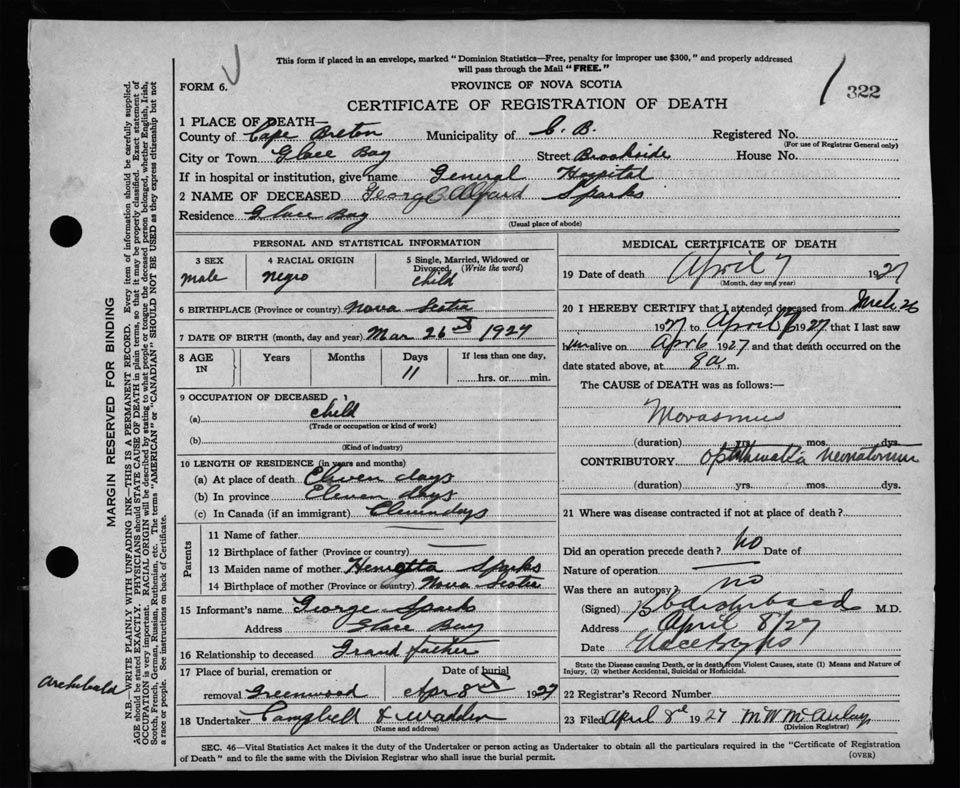 This form if placed in an envelope, marked "Dominion Statistics—Free, penalty for improper use $300," and properly addressed
will pass through the Mail "FREE."
FORM 6.
PROVINCE OF NOVA SCOTIA
322
CERTIFICATE OF REGISTRATION OF DEATH
1 PLACE OF DEATH—
County of Cape Breton Municipality of C. B. Registered No.
(For use of Registrar General only)
City or Town Glace Bay Street Brookside House No.
If in hospital or institution, give name General Hospital
2 NAME OF DECEASED George Sparks
Residence Glace Bay
(Usual place of abode)
PERSONAL AND STATISTICAL INFORMATION
3 SEX 4 RACIAL ORIGIN 5 Single, Married, Widowed or Divorced (Write the word)
male negro child
6 BIRTHPLACE (Province or country) Nova Scotia
7 DATE OF BIRTH (month, day and year) Mar 26th 1927
8 AGE IN Years Months Days If less than one day,
11 hrs. or min.
9 OCCUPATION OF DECEASED
(a) child
(Trade or occupation or kind of work)
(b)
(Kind of industry)
10 LENGTH OF RESIDENCE (in years and months)
(a) At place of death Eleven days
(b) In province Eleven days
(c) In Canada (if an immigrant) Eleven days
Parents
11 Name of father
12 Birthplace of father (Province or country)
13 Maiden name of mother Henrietta Sparks
14 Birthplace of mother (Province or country) Nova Scotia
15 Informant's name George Sparks
Address Glace Bay
16 Relationship to deceased Grand father
17 Place of burial, cremation or Date of burial
removal Greenwood Apr 8th 1927
18 Undertaker Campbell & Wadden
(Name and address)
MEDICAL CERTIFICATE OF DEATH
19 Date of death April 7 1927
(Month, day and year)
20 I HEREBY CERTIFY that I attended deceased from Mch 26
1927 to April 1927 that I last saw
him alive on Apr 6 1927 and that death occurred on the
date stated above, at 9 a m.
The CAUSE of DEATH was as follows:
Morasmus
(duration) yrs. mos. dys.
CONTRIBUTORY neonatorum
(duration) yrs. mos. dys.
21 Where was disease contracted if not at place of death?
Did an operation precede death? no Date of
Nature of operation
Was there an autopsy? no
(Signed) M.D.
Address April 8/27
Date Glace Bay NS
State the Disease causing Death, or in death from Violent Causes, state (1) Means and Nature of
Injury, (2) whether Accidental, Suicidal or Homicidal.
22 Registrar's Record Number
23 Filed April 8th 1927 M W McAulay
(Division Registrar)
SEC. 46—Vital Statistics Act makes it the duty of the Undertaker or person acting as Undertaker to obtain all the particulars required in the "Certificate of Registration
of Death" and to file the same with the Division Registrar who shall issue the burial permit.
(OVER)
MARGIN RESERVED FOR BINDING
N.B.—WRITE PLAINLY WITH UNFADING INK—THIS IS A PERMANENT RECORD. Every item of information should be carefully supplied.
AGE should be stated EXACTLY. PHYSICIANS should STATE CAUSE OF DEATH in plain terms, so that it may be properly classified. Exact statement of
OCCUPATION is very important. RACIAL ORIGIN will be described by stating to what people or tongue the deceased person belonged, whether English, Irish,
Scotch, French, German, Russian, Ruthenian, etc. The terms "AMERICAN" or "CANADIAN" SHOULD NOT BE USED as they express citizenship but not
a race or people. See instructions on back of Certificate.
Archibald